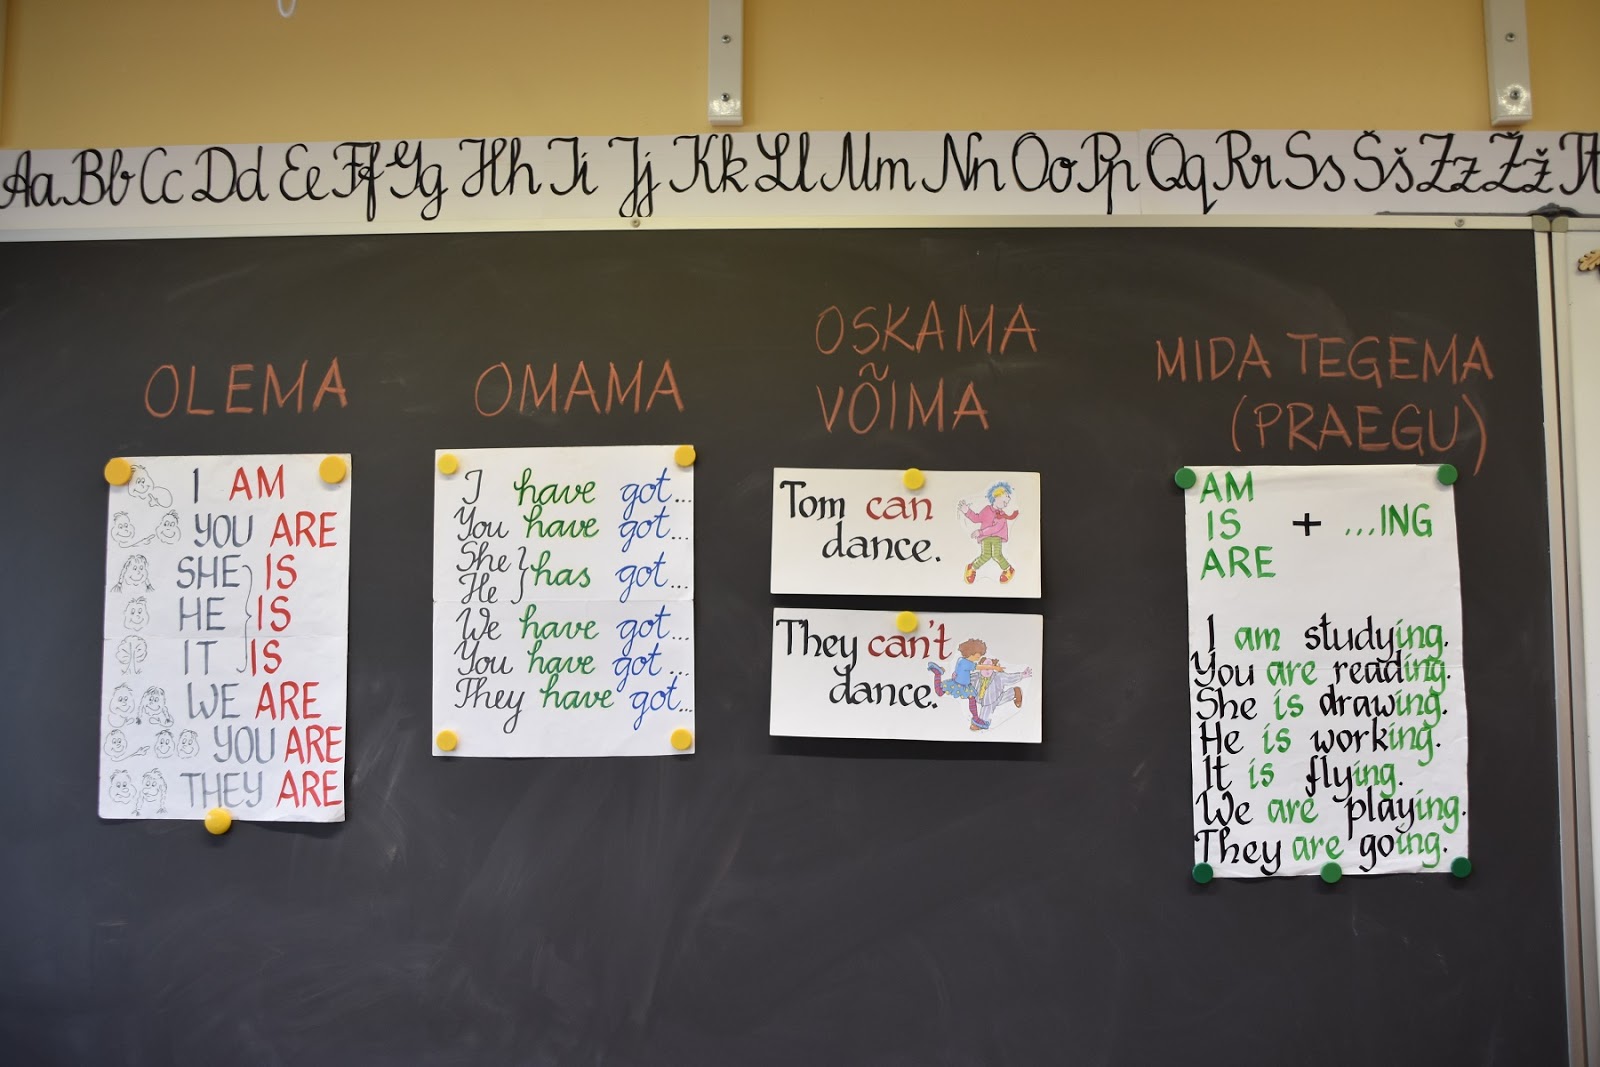 Aa Bb Cc Dd Ee Ff Gg Hh Ii Jj Kk Ll Mm Nn Oo Pp Qq Rr Ss Šš Zz Žž Tt
OLEMA
I AM
YOU ARE
SHE IS
HE IS
IT IS
WE ARE
YOU ARE
THEY ARE
OMAMA
I have got...
You have got...
She
He } has got...
We have got...
You have got...
They have got...
OSKAMA
VÕIMA
Tom can
dance.
They can't
dance.
MIDA TEGEMA
(PRAEGU)
AM
IS + ...ING
ARE
I am studying.
You are reading.
She is drawing.
He is working.
It is flying.
We are playing.
They are going.